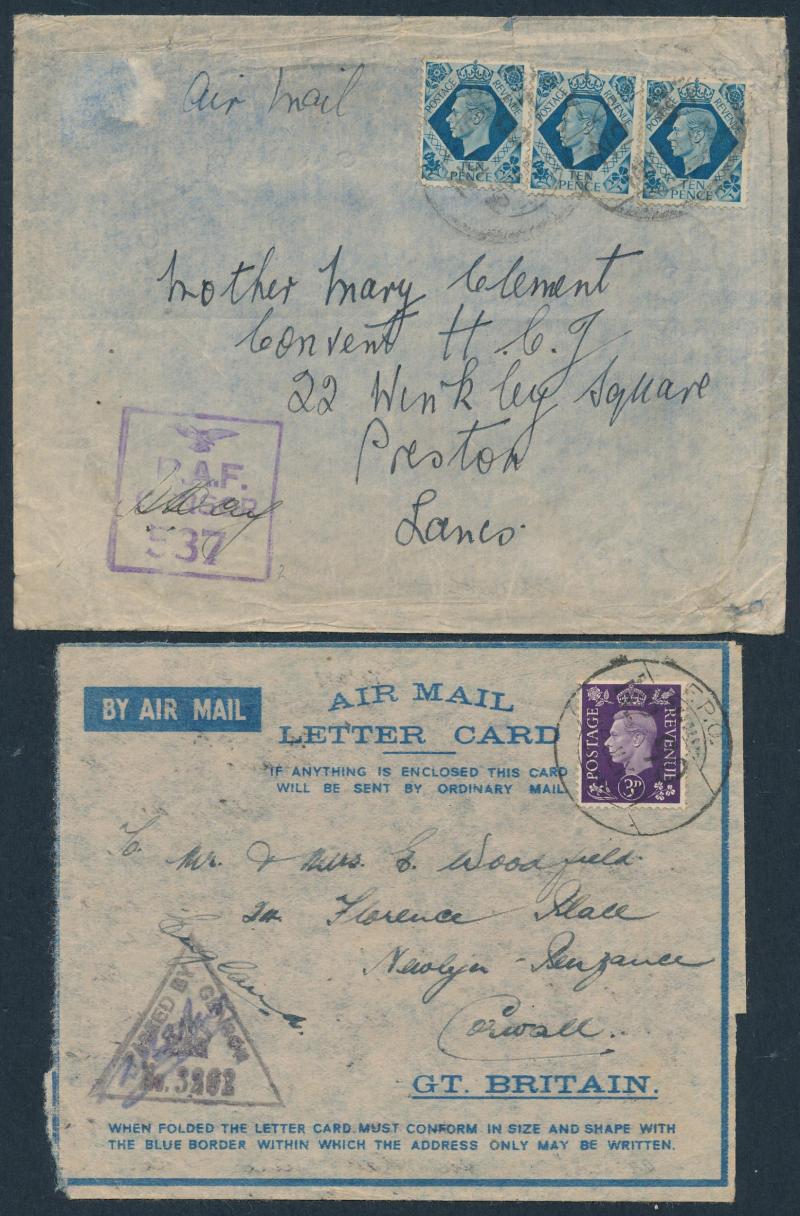 Air Mail
POSTAGE REVENUE
TEN PENCE
POSTAGE REVENUE
TEN PENCE
POSTAGE REVENUE
TEN PENCE
Mother Mary Clement
Convent H.C.J
22 Winkley Square
Preston
Lancs.
R.A.F.
CENSOR
537
BY AIR MAIL
AIR MAIL
LETTER CARD
IF ANYTHING IS ENCLOSED THIS CARD
WILL BE SENT BY ORDINARY MAIL
POSTAGE REVENUE
3D
F.P.O.
Mr. & Mrs. E. Woodfield.
Florence Place
Newlyn - Penzance
Corwall.
England.
GT. BRITAIN.
PASSED BY CENSOR
No. 3262
WHEN FOLDED THE LETTER CARD MUST CONFORM IN SIZE AND SHAPE WITH
THE BLUE BORDER WITHIN WHICH THE ADDRESS ONLY MAY BE WRITTEN.